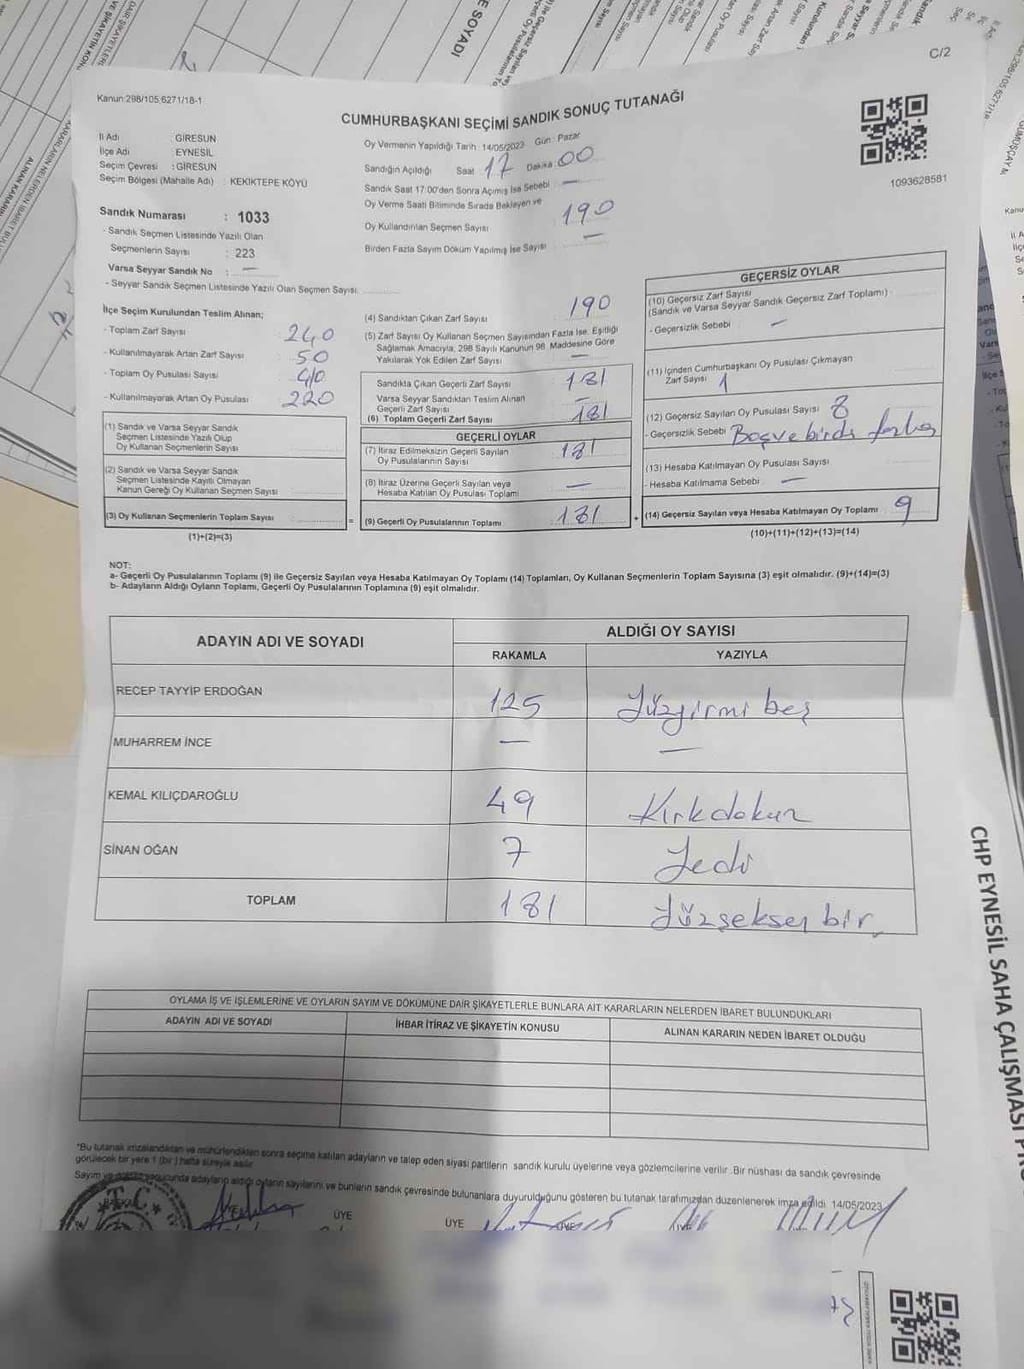 C/2
Kanun:298/105,6271/18-1
CUMHURBAŞKANI SEÇİMİ SANDIK SONUÇ TUTANAĞI
1093628581
İl Adı : GİRESUN
İlçe Adı : EYNESİL
Seçim Çevresi : GİRESUN
Seçim Bölgesi (Mahalle Adı) : KEKİKTEPE KÖYÜ
Sandık Numarası : 1033
- Sandık Seçmen Listesinde Yazılı Olan
Seçmenlerin Sayısı : 223
Varsa Seyyar Sandık No : —
- Seyyar Sandık Seçmen Listesinde Yazılı Olan Seçmen Sayısı:
Oy Vermenin Yapıldığı Tarih : 14/05/2023 Gün : Pazar
Sandığın Açıldığı Saat 17 Dakika 00
Sandık Saat 17.00'den Sonra Açımış İse Sebebi —
Oy Verme Saati Bitiminde Sırada Bekleyen ve
Oy Kullandırılan Seçmen Sayısı 190
Birden Fazla Sayım Döküm Yapılmış İse Sayısı —
İlçe Seçim Kurulundan Teslim Alınan;
- Toplam Zarf Sayısı 240
- Kullanılmayarak Artan Zarf Sayısı 50
- Toplam Oy Pusulası Sayısı 410
- Kullanılmayarak Artan Oy Pusulası 220
(1) Sandık ve Varsa Seyyar Sandık
Seçmen Listesinde Yazılı Olup
Oy Kullanan Seçmenlerin Sayısı
(2) Sandık ve Varsa Seyyar Sandık
Seçmen Listesinde Kayıtlı Olmayan
Kanun Gereği Oy Kullanan Seçmen Sayısı
(3) Oy Kullanan Seçmenlerin Toplam Sayısı
(1)+(2)=(3)
(4) Sandıktan Çıkan Zarf Sayısı 190
(5) Zarf Sayısı Oy Kullanan Seçmen Sayısından Fazla İse, Eşitliği
Sağlamak Amacıyla, 298 Sayılı Kanunun 98. Maddesine Göre
Yakılarak Yok Edilen Zarf Sayısı —
Sandıkta Çıkan Geçerli Zarf Sayısı 181
Varsa Seyyar Sandıktan Teslim Alınan
Geçerli Zarf Sayısı —
(6) Toplam Geçerli Zarf Sayısı 181
GEÇERLİ OYLAR
(7) İtiraz Edilmeksizin Geçerli Sayılan
Oy Pusulalarının Sayısı 181
(8) İtiraz Üzerine Geçerli Sayılan veya
Hesaba Katılan Oy Pusulası Toplamı —
= (9) Geçerli Oy Pusulalarının Toplamı 181 +
GEÇERSİZ OYLAR
(10) Geçersiz Zarf Sayısı
(Sandık ve Varsa Seyyar Sandık Geçersiz Zarf Toplamı)
- Geçersizlik Sebebi —
(11) İçinden Cumhurbaşkanı Oy Pusulası Çıkmayan
Zarf Sayısı 1
(12) Geçersiz Sayılan Oy Pusulası Sayısı 8
- Geçersizlik Sebebi Boş ve birden fazla
(13) Hesaba Katılmayan Oy Pusulası Sayısı
- Hesaba Katılmama Sebebi —
(14) Geçersiz Sayılan veya Hesaba Katılmayan Oy Toplamı 9
(10)+(11)+(12)+(13)=(14)
NOT:
a- Geçerli Oy Pusulalarının Toplamı (9) ile Geçersiz Sayılan veya Hesaba Katılmayan Oy Toplamı (14) Toplamları, Oy Kullanan Seçmenlerin Toplam Sayısına (3) eşit olmalıdır. (9)+(14)=(3)
b- Adayların Aldığı Oyların Toplamı, Geçerli Oy Pusulalarının Toplamına (9) eşit olmalıdır.
ADAYIN ADI VE SOYADI
ALDIĞI OY SAYISI
RAKAMLA YAZIYLA
RECEP TAYYİP ERDOĞAN 125 Yüzyirmi beş
MUHARREM İNCE — —
KEMAL KILIÇDAROĞLU 49 Kırkdokuz
SİNAN OĞAN 7 Yedi
TOPLAM 181 Yüzseksen bir
OYLAMA İŞ VE İŞLEMLERİNE VE OYLARIN SAYIM VE DÖKÜMÜNE DAİR ŞİKAYETLERLE BUNLARA AİT KARARLARIN NELERDEN İBARET BULUNDUKLARI
ADAYIN ADI VE SOYADI İHBAR İTİRAZ VE ŞİKAYETİN KONUSU ALINAN KARARIN NEDEN İBARET OLDUĞU
*Bu tutanak imzalandıktan ve mühürlendikten sonra seçime katılan adayların ve talep eden siyasi partilerin sandık kurulu üyelerine veya gözlemcilerine verilir .Bir nüshası da sandık çevresinde
görülecek bir yere 1 (bir ) hafta süreyle asılır.
Sayım ve döküm sonucunda adayların aldığı oyların sayılarını ve bunların sandık çevresinde bulunanlara duyurulduğunu gösteren bu tutanak tarafımızdan düzenlenerek imza edildi. 14/05/2023
T.C.
ÜYE ÜYE ÜYE
CHP EYNESİL SAHA ÇALIŞMASI